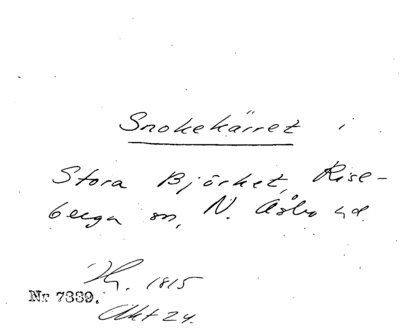 Snokekärret i
Stora Björket, Rise-
berga sn, N. Åsbo hd
1815
Nr 7339.
Akt 24.